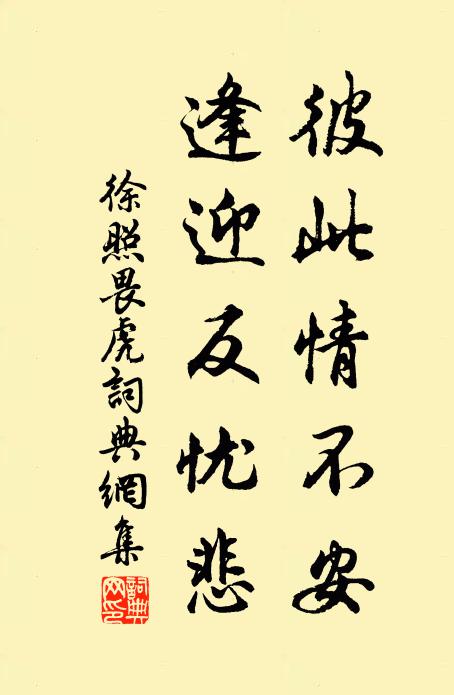 彼此情不安
逢迎反忧悲
徐照畏虎詞典網集
詞典网印